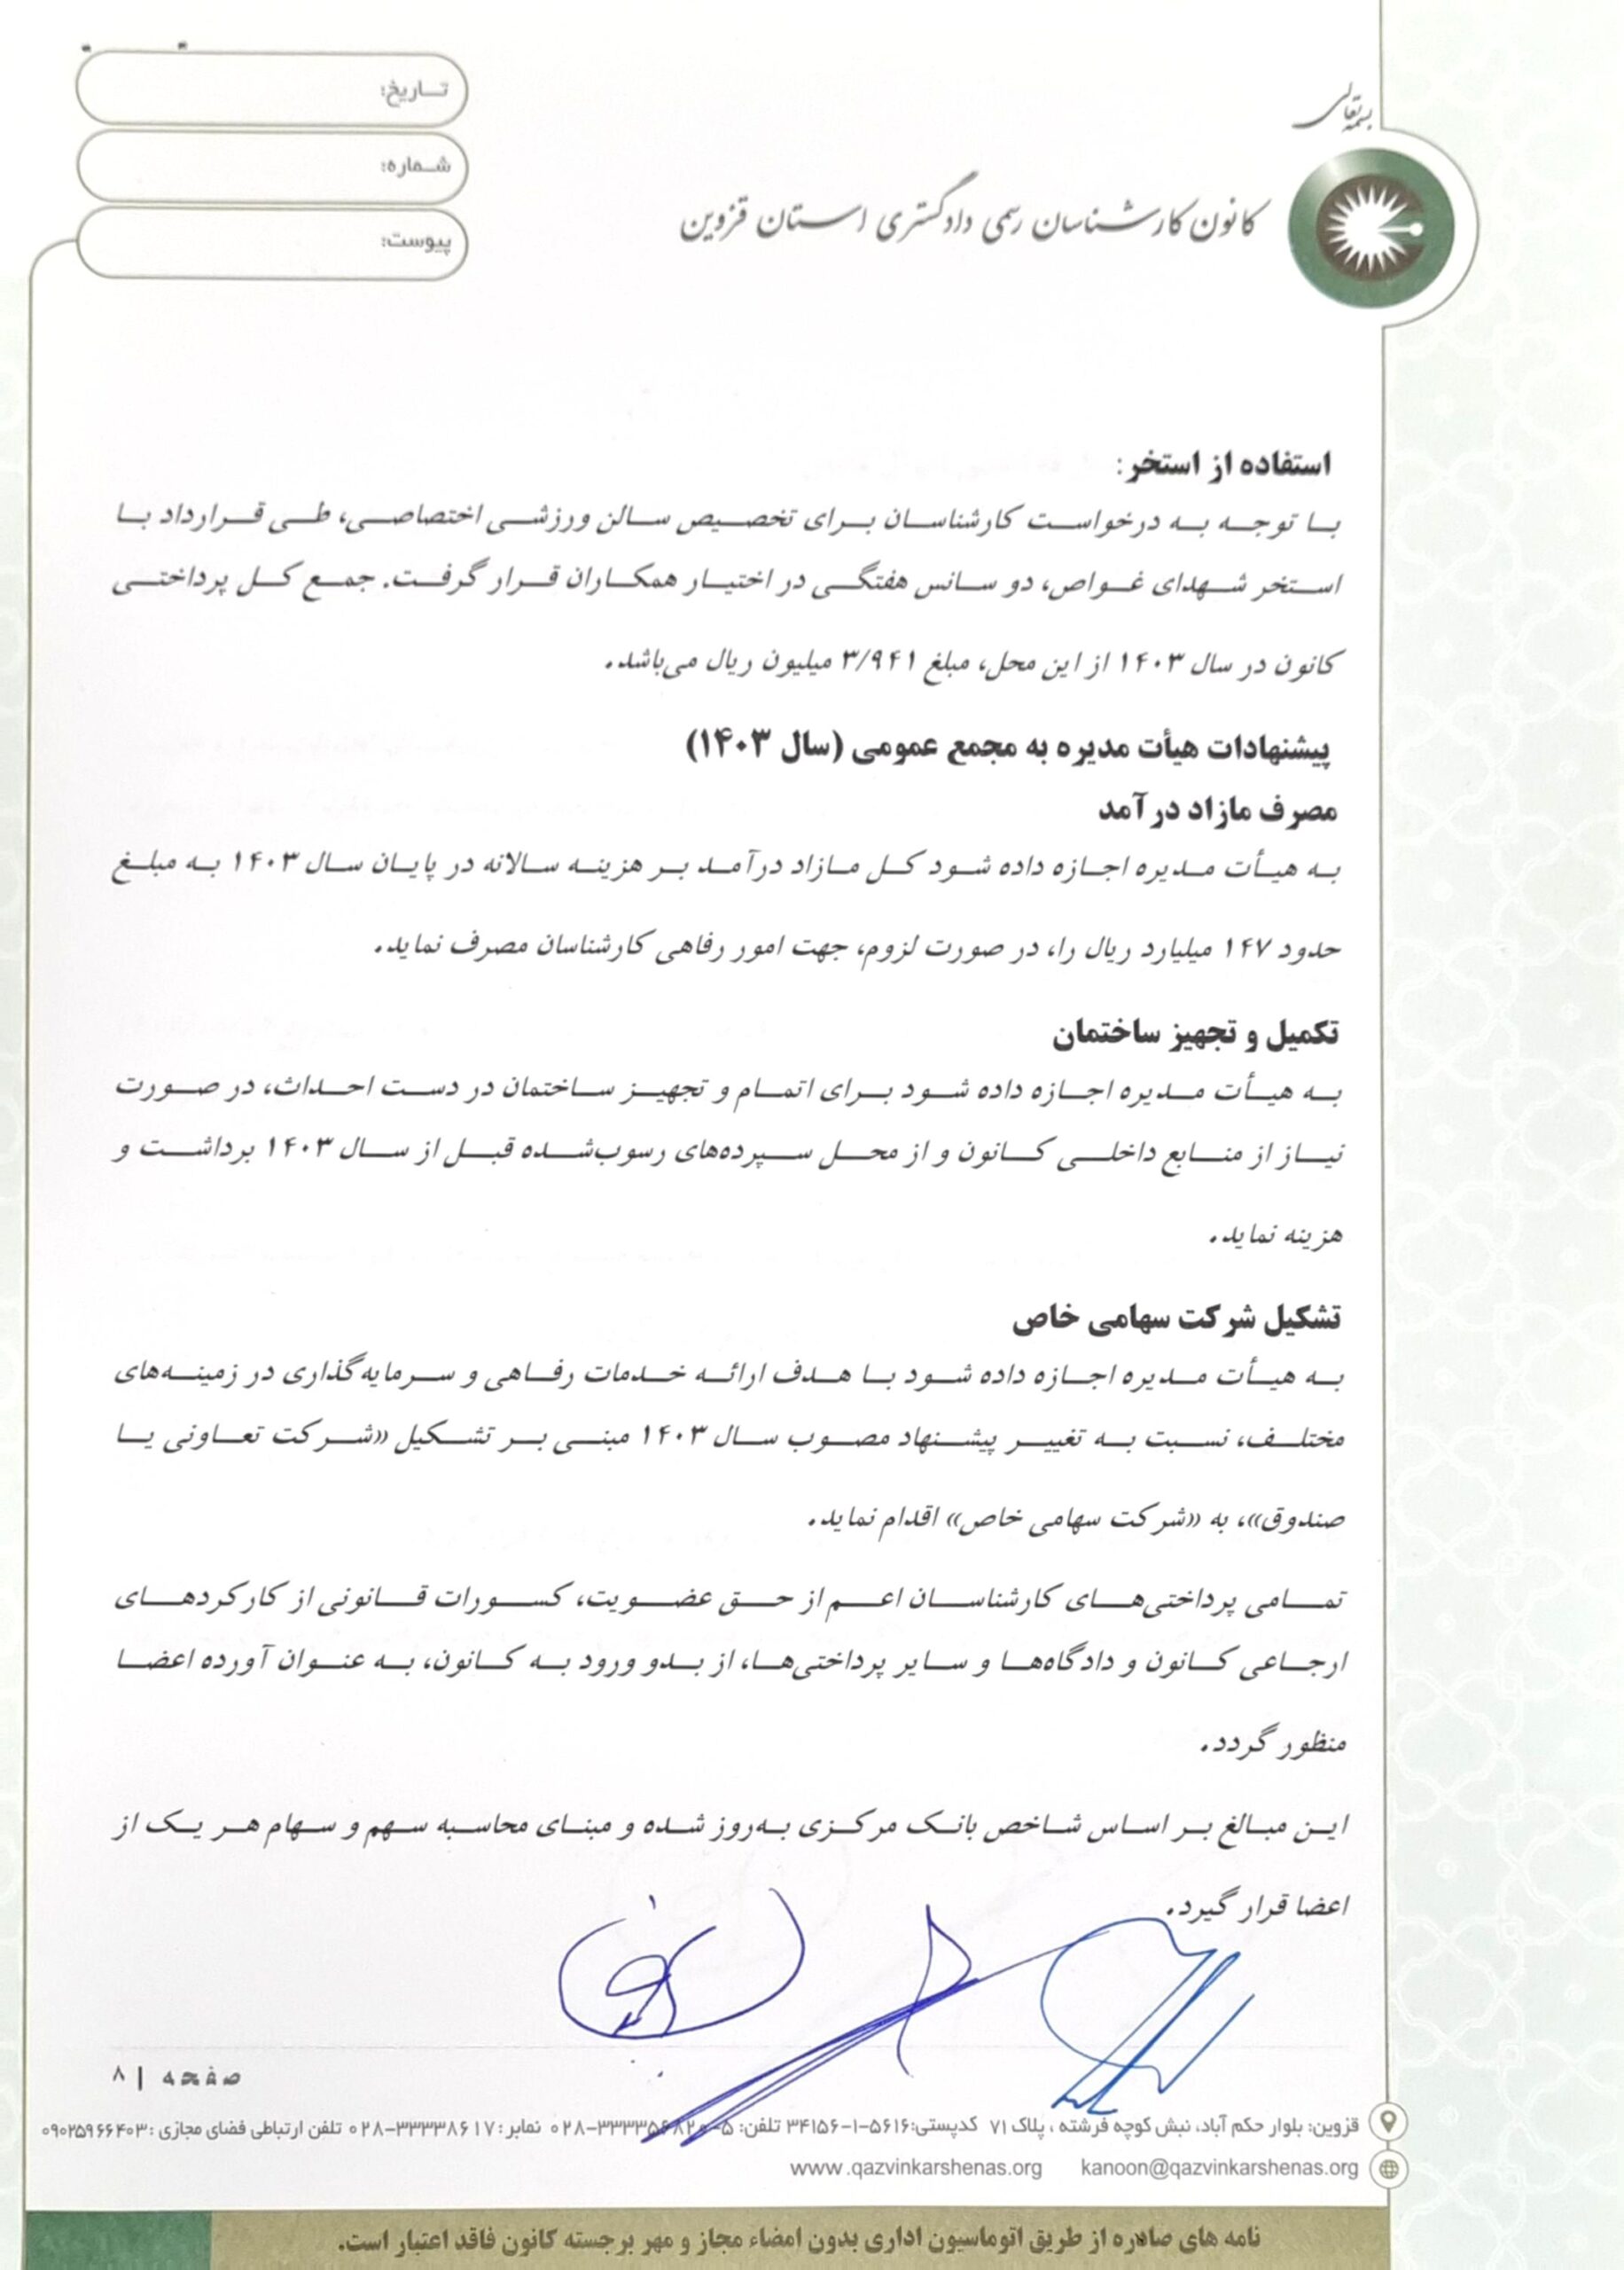 بسمه تعالی
کانون کارشناسان رسمی دادگستری استان قزوین
تاریخ:
شماره:
پیوست:
استفاده از استخر:
با توجه به درخواست کارشناسان برای تخصیص سالن ورزشی اختصاصی، طی قرارداد با
استخر شهدای غواص، دو سانس هفتگی در اختیار همکاران قرار گرفت. جمع کل پرداختی
کانون در سال ۱۴۰۳ از این محل، مبلغ ۳/۹۴۱ میلیون ریال می‌باشد.
پیشنهادات هیأت مدیره به مجمع عمومی (سال ۱۴۰۳)
مصرف مازاد درآمد
به هیأت مدیره اجازه داده شود کل مازاد درآمد بر هزینه سالانه در پایان سال ۱۴۰۳ به مبلغ
حدود ۱۴۷ میلیارد ریال را، در صورت لزوم، جهت امور رفاهی کارشناسان مصرف نماید.
تکمیل و تجهیز ساختمان
به هیأت مدیره اجازه داده شود برای اتمام و تجهیز ساختمان در دست احداث، در صورت
نیاز از منابع داخلی کانون و از محل سپرده‌های رسوب‌شده قبل از سال ۱۴۰۳ برداشت و
هزینه نماید.
تشکیل شرکت سهامی خاص
به هیأت مدیره اجازه داده شود با هدف ارائه خدمات رفاهی و سرمایه‌گذاری در زمینه‌های
مختلف، نسبت به تغییر پیشنهاد مصوب سال ۱۴۰۳ مبنی بر تشکیل «شرکت تعاونی یا
صندوق»، به «شرکت سهامی خاص» اقدام نماید.
تمامی پرداختی‌های کارشناسان اعم از حق عضویت، کسورات قانونی از کارکردهای
ارجاعی کانون و دادگاه‌ها و سایر پرداختی‌ها، از بدو ورود به کانون، به عنوان آورده اعضا
منظور گردد.
این مبالغ بر اساس شاخص بانک مرکزی به‌روز شده و مبنای محاسبه سهم و سهام هر یک از
اعضا قرار گیرد.
صفحه | ۸
قزوین: بلوار حکم آباد، نبش کوچه فرشته ، پلاک ۷۱ کدپستی: ۵۶۱۶-۱-۳۴۱۵۶ تلفن: ۵-۳۳۳۵۶۸۲۰-۰۲۸ نمابر: ۳۳۳۳۸۶۱۷-۰۲۸ تلفن ارتباطی فضای مجازی : ۰۹۰۲۵۹۶۶۴۰۳
www.qazvinkarshenas.org kanoon@qazvinkarshenas.org
نامه های صادره از طریق اتوماسیون اداری بدون امضاء مجاز و مهر برجسته کانون فاقد اعتبار است.